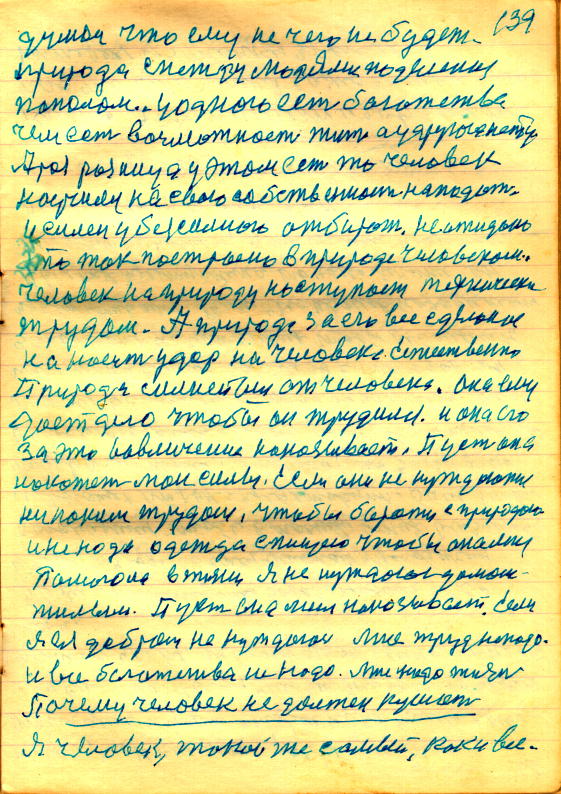 139
думал что ему не чего не будет.
природа между людями поделена
пополам. у одного ест богатства
чем ест возможност жит а у другого нету
А раз разницу у этом ест то человек
научили на свою собственност нападат.
и силен у безсилного отбират.
это так построено в природе человеком.
Человек на природу наступает технически
трудом. А природа за его все сделаное
наносит удар на человека. Естественно
Природа силнеший от человека. она ему
дает дело чтобы он трудился. и она его
за это наказывает. Пуст она
накажет мои силы, если они не нуждаются
никаким трудом, чтобы боротся с природою
и не надо одежда с пищею чтобы она мне
Помогала в жизни я не нуждаюс домом
жилым. Пуст она меня наказывает. если
я ея добром не нуждаюся мне труд не надо.
и все богатства не надо. мне надо жизн
Почему человек не должен кушат
Я человек, такой же самый, как и все.